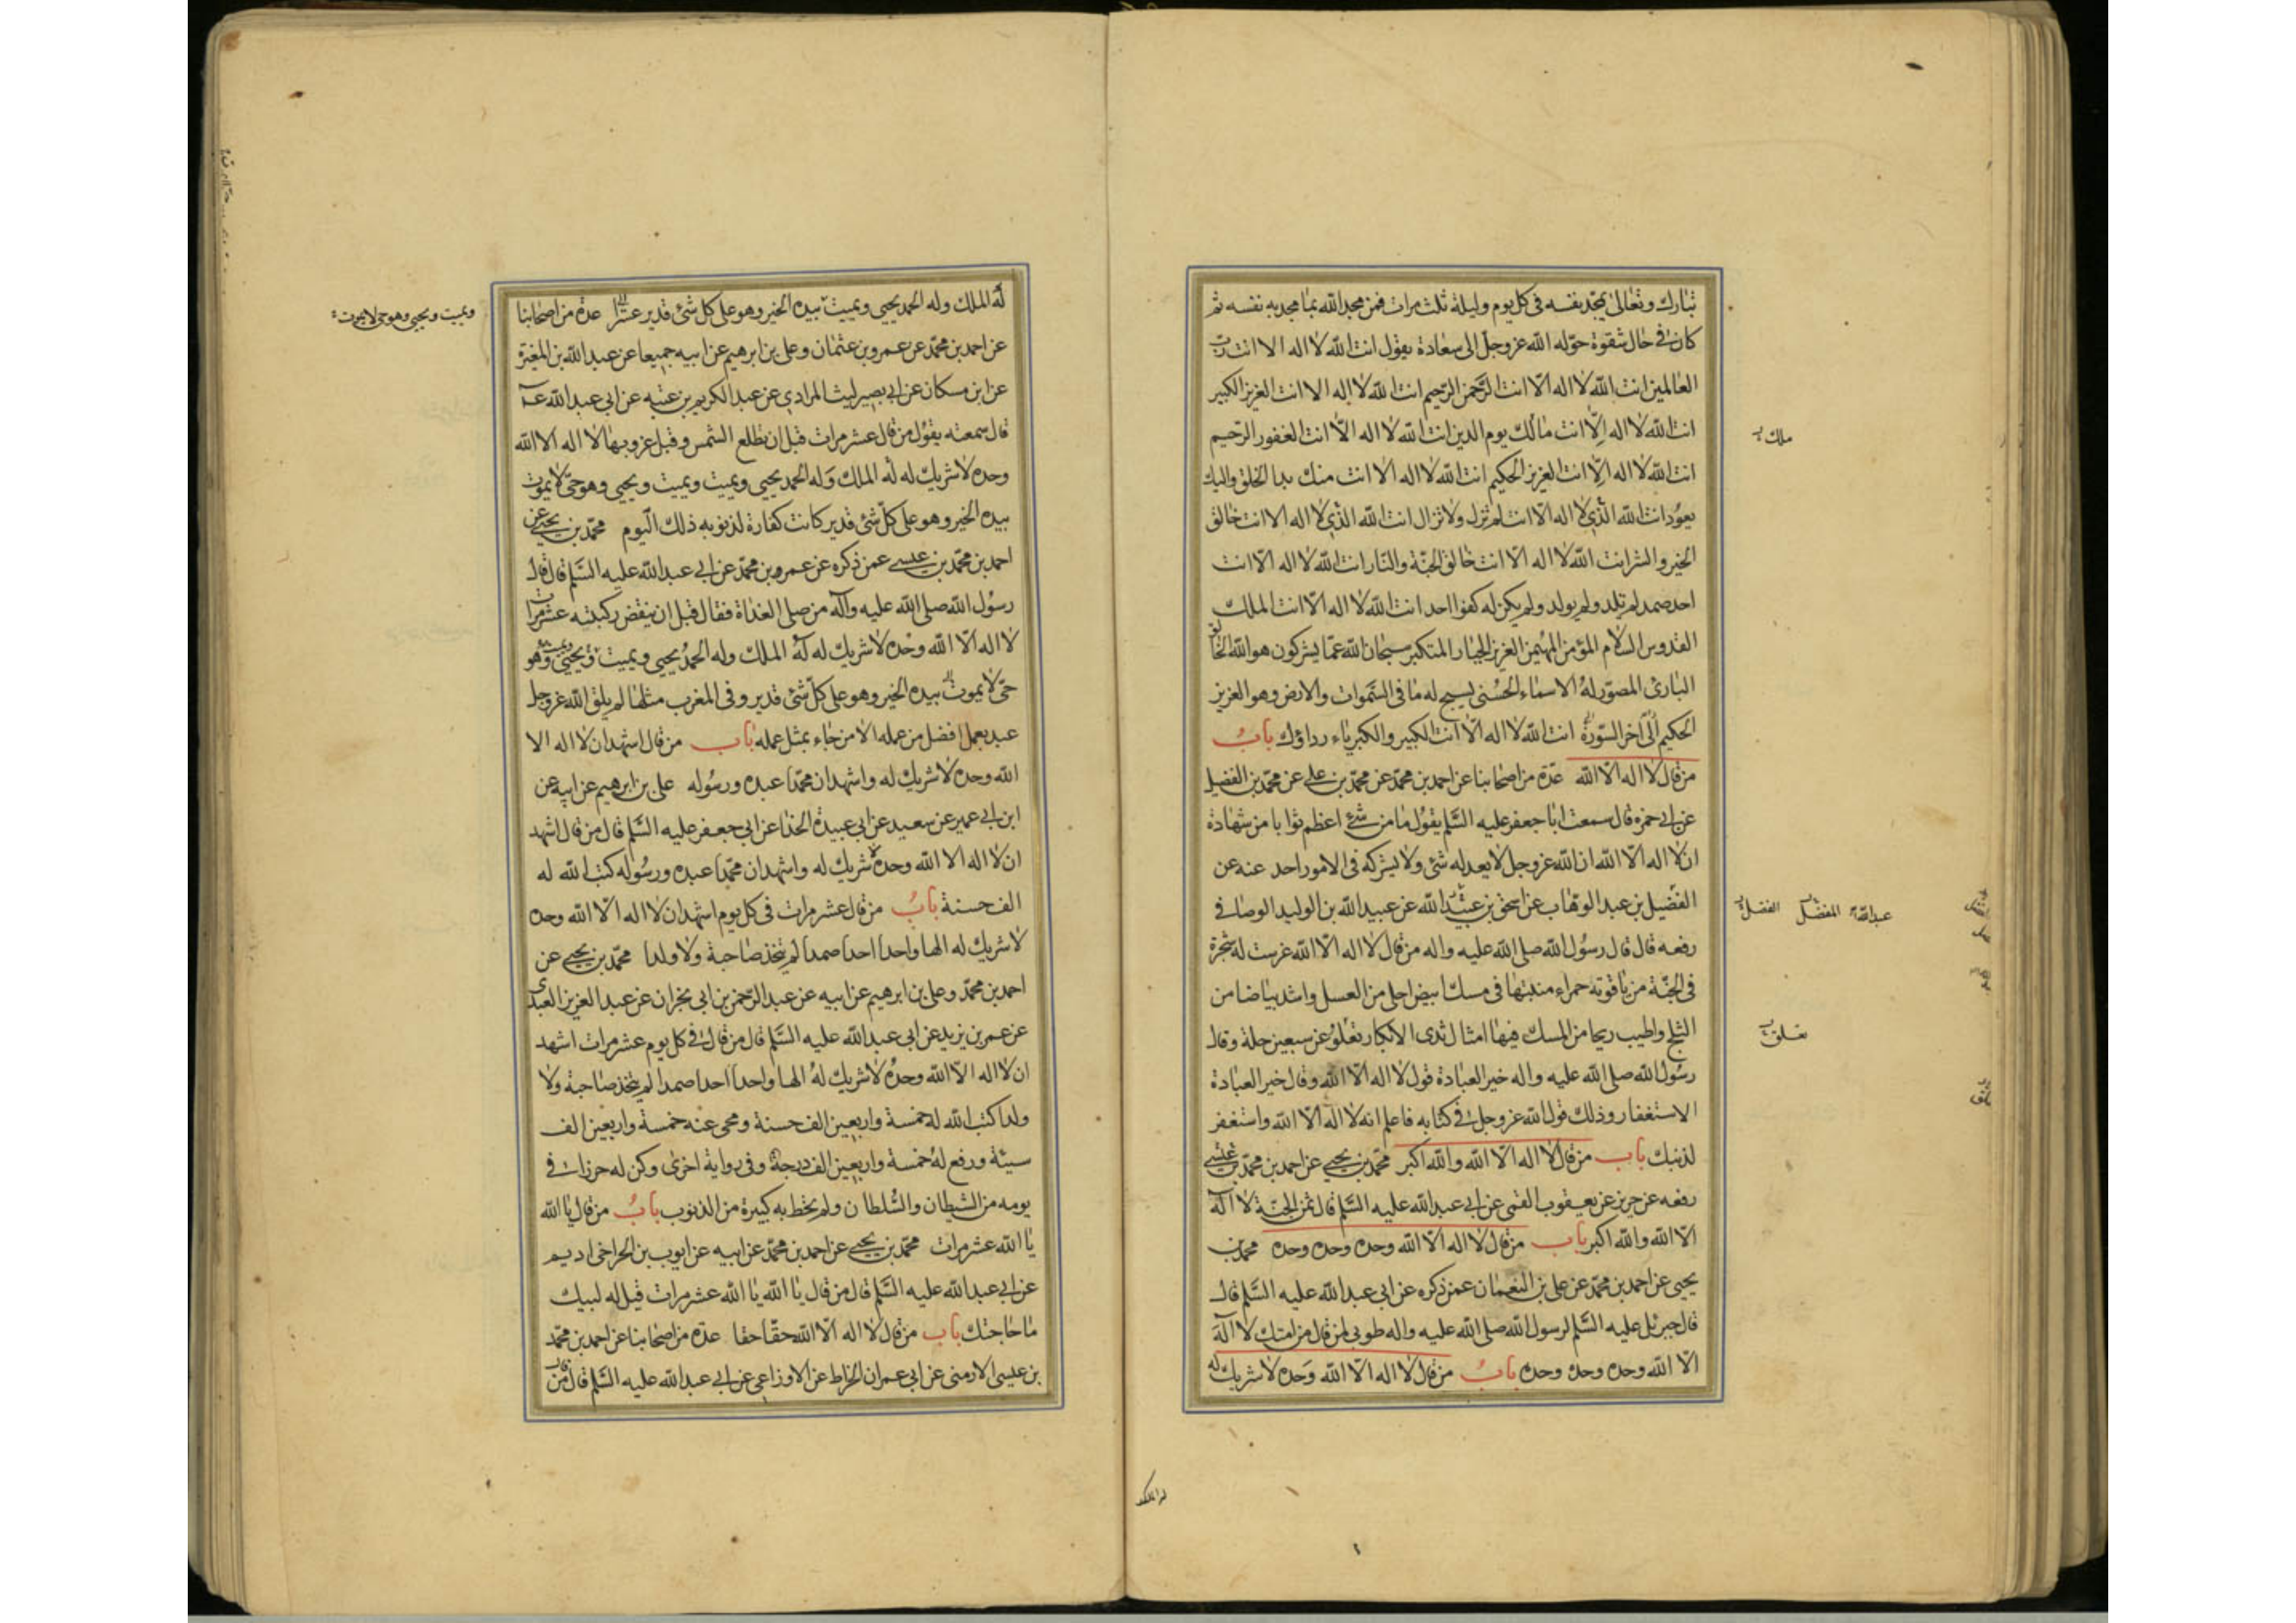 تبارك وتعالى يمجد نفسه فى كل يوم وليلة ثلث مرات فمن مجد الله بما مجد به نفسه ثم
كان فى حال شقوة حوّله الله عز وجل الى سعادة يقول انت الله لا اله الا انت رب
العالمين انت الله لا اله الّا انت الرّحمن الرّحيم انت الله لا اله الا انت العزيز الكبير
انت الله لا اله الّا انت مالك يوم الدين انت الله لا اله الّا انت الغفور الرّحيم
انت الله لا اله الّا انت العزيز الحكيم انت الله لا اله الا انت منك بدا الخلق واليك
يعود انت الله الّذى لا اله الّا انت لم تزل ولا تزال انت الله الّذى لا اله الا انت خالق
الخير والشر انت الله لا اله الّا انت خالق الجنّة والنار انت الله لا اله الّا انت
احد صمد لم تلد ولم يولد ولم يكن له كفوا احد انت الله لا اله الّا انت الملك
القدوس السلام المؤمن المهيمن العزيز الجبار المتكبر سبحان الله عمّا يشركون هو الله الخالق
البارئ المصوّر له الاسماء الحسنى يسبح له ما فى السّموات والارض وهو العزيز
الحكيم الى آخر السّورة انت الله لا اله الّا انت الكبير والكبرياء رداؤك بابُ
من قال لا اله الّا الله عدّة من اصحابنا عن احمد بن محمّد عن محمّد بن على عن محمّد بن الفضيل
عن ابى حمزه قال سمعت ابا جعفر عليه السّلم يقول ما من شئ اعظم ثوابا من شهادة
ان لا اله الّا الله ان الله عز وجل لا يعدله شئ ولا يشركه فى الامور احد عنه عن
الفضيل بن عبد الوهّاب عن اسحق بن عبيد الله عن عبيد الله بن الوليد الوصافى
رفعه قال قال رسول الله صلى الله عليه واله من قال لا اله الّا الله غرست له شجرة
فى الجنّة من ياقوتة حمراء منبتها فى مسك ابيض احلى من العسل واشد بياضا من
الثلج واطيب ريحا من المسك فيها امثال ثدى الابكار تعلو عن سبعين حلة وقال
رسول الله صلى الله عليه واله خير العبادة قول لا اله الّا الله وقال خير العبادة
الاستغفار وذلك قول الله عز وجل فى كتابه فاعلم انه لا اله الّا الله واستغفر
لذنبك باب من قال لا اله الّا الله والله اكبر محمّد بن يحيى عن احمد بن محمّد بن عيسى
رفعه عن حريز عن يعقوب القمى عن ابى عبد الله عليه السّلم قال ثمن الجنّة لا اله
الّا الله والله اكبر باب من قال لا اله الّا الله وحده وحده وحده محمّد بن
يحيى عن احمد بن محمّد عن على بن النعمان عمن ذكره عن ابى عبد الله عليه السّلم قال
قال جبرئل عليه السّلم لرسول الله صلى الله عليه واله طوبى لمن قال من امتك لا اله
الّا الله وحده وحده وحده بابُ من قال لا اله الّا الله وحده لا شريك له
ملك
عبد الله المفضل الفضل
تعلق
له الملك وله الحمد يحيى ويميت بيده الخير وهو على كل شئ قدير عشرا عدة من اصحابنا
عن احمد بن محمّد عن عمرو بن عثمان وعلى بن ابرهيم عن ابيه جميعا عن عبد الله بن المغيرة
عن ابن مسكان عن ابى بصير ليث المرادى عن عبد الكريم بن عتبه عن ابى عبد الله ع
قال سمعته يقول من قال عشر مرات قبل ان تطلع الشمس وقبل غروبها لا اله الا الله
وحده لا شريك له له الملك وله الحمد يحيى ويميت ويميت ويحيى وهو حىّ لا يموت
بيده الخير وهو على كلّ شئ قدير كانت كفارة لذنوبه ذلك اليوم محمّد بن يحيى عن
احمد بن محمّد بن عيسى عمن ذكره عن عمرو بن محمّد عن ابى عبد الله عليه السّلم قال قال
رسول الله صلى الله عليه وآله من صلى الغداة فقال قبل ان ينقض ركبتيه عشر مرات
لا اله الّا الله وحده لا شريك له له الملك وله الحمد يحيى ويميت ويميت ويحيى وهو
حىّ لا يموت بيده الخير وهو على كلّ شئ قدير وفى المغرب مثلها لم يلق الله عز وجل
عبد بعمل افضل من عمله الا من جاء بمثل عمله باب من قال اشهد ان لا اله الا
الله وحده لا شريك له واشهد ان محمّدا عبده ورسوله على بن ابرهيم عن ابيه عن
ابن ابى عمير عن سعيد عن ابى عبيدة الحذا عن ابى جعفر عليه السّلم قال من قال اشهد
ان لا اله الا الله وحده لا شريك له واشهد ان محمّدا عبده ورسوله كتب الله له
الف حسنة بابُ من قال عشر مرات فى كل يوم اشهد ان لا اله الّا الله وحده
لا شريك له الها واحدا احدا صمدا لم يتخذ صاحبة ولا ولدا محمّد بن يحيى عن
احمد بن محمّد وعلى بن ابرهيم عن ابيه عن عبد الرّحمن بن ابى نجران عن عبد العزيز العبدى
عن عمر بن يزيد عن ابى عبد الله عليه السّلم قال من قال فى كل يوم عشر مرات اشهد
ان لا اله الّا الله وحده لا شريك له الها واحدا احدا صمدا لم يتخذ صاحبة ولا
ولدا كتب الله له خمسة واربعين الف حسنة ومحى عنه خمسة واربعين الف
سيئة ورفع له خمسة واربعين الف درجة وفى رواية اخرى وكن له حرزا فى
يومه من الشيطان والسّلطان ولم يحط به كبيرة من الذنوب بابُ من قال يا الله
يا الله عشر مرات محمّد بن يحيى عن احمد بن محمّد عن ابيه عن ايوب بن الحر اخى اديم
عن ابى عبد الله عليه السّلم قال من قال يا الله يا الله عشر مرات قيل له لبيك
ما حاجتك باب من قال لا اله الّا الله حقّا حقا عدّة من اصحابنا عن احمد بن محمّد
بن عيسى الارمنى عن ابى عمران الخراط عن الاوزاعى عن ابى عبد الله عليه السّلم قال من قال
ويميت ويحيى وهو حى لا يموت
له الملك